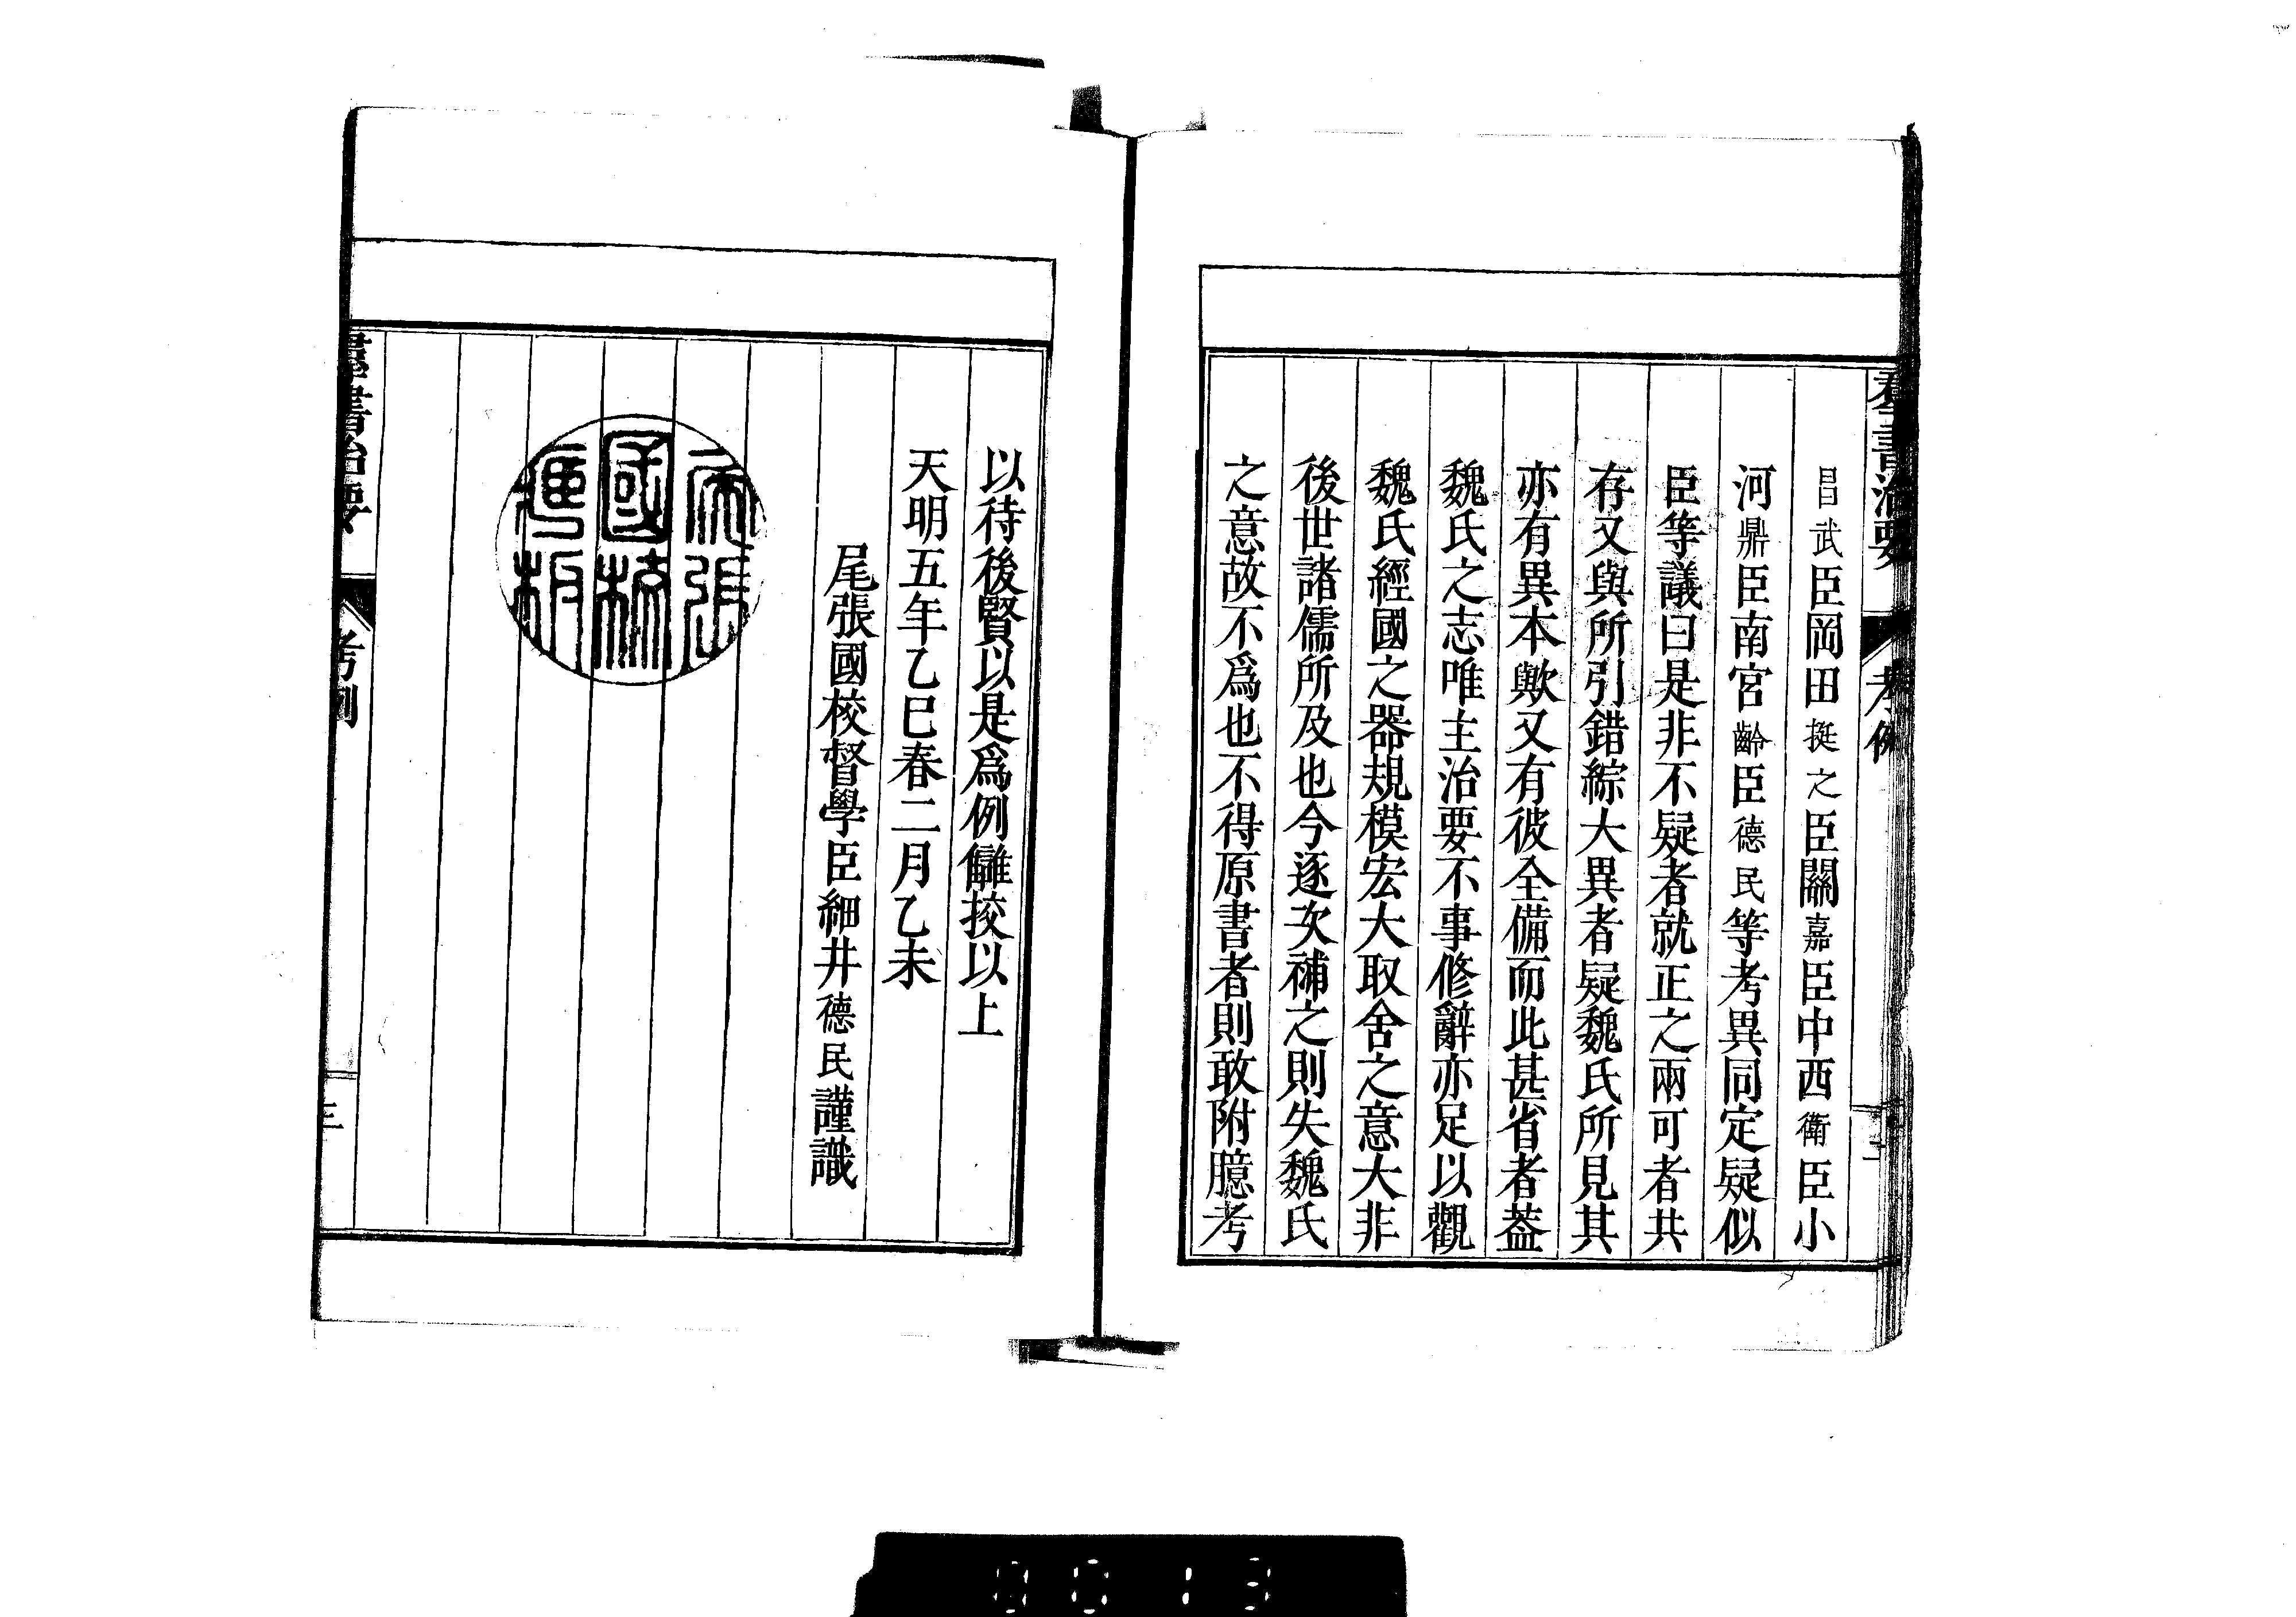 群書治要 考例 二
昌武臣岡田挺之臣關嘉臣中西衞臣小
河鼎臣南宮齡臣德民等考異同定疑似
臣等議曰是非不疑者就正之兩可者共
存又與所引錯綜大異者疑魏氏所見其
亦有異本歟又有彼全備而此甚省者蓋
魏氏之志唯主治要不事修辭亦足以觀
魏氏經國之器規模宏大取舍之意大非
後世諸儒所及也今逐次補之則失魏氏
之意故不爲也不得原書者則敢附臆考
以待後賢以是爲例讎挍以上
天明五年乙巳春二月乙未
尾張國校督學臣細井德民謹識
尾張
國校
群書治要 考例 三
0013